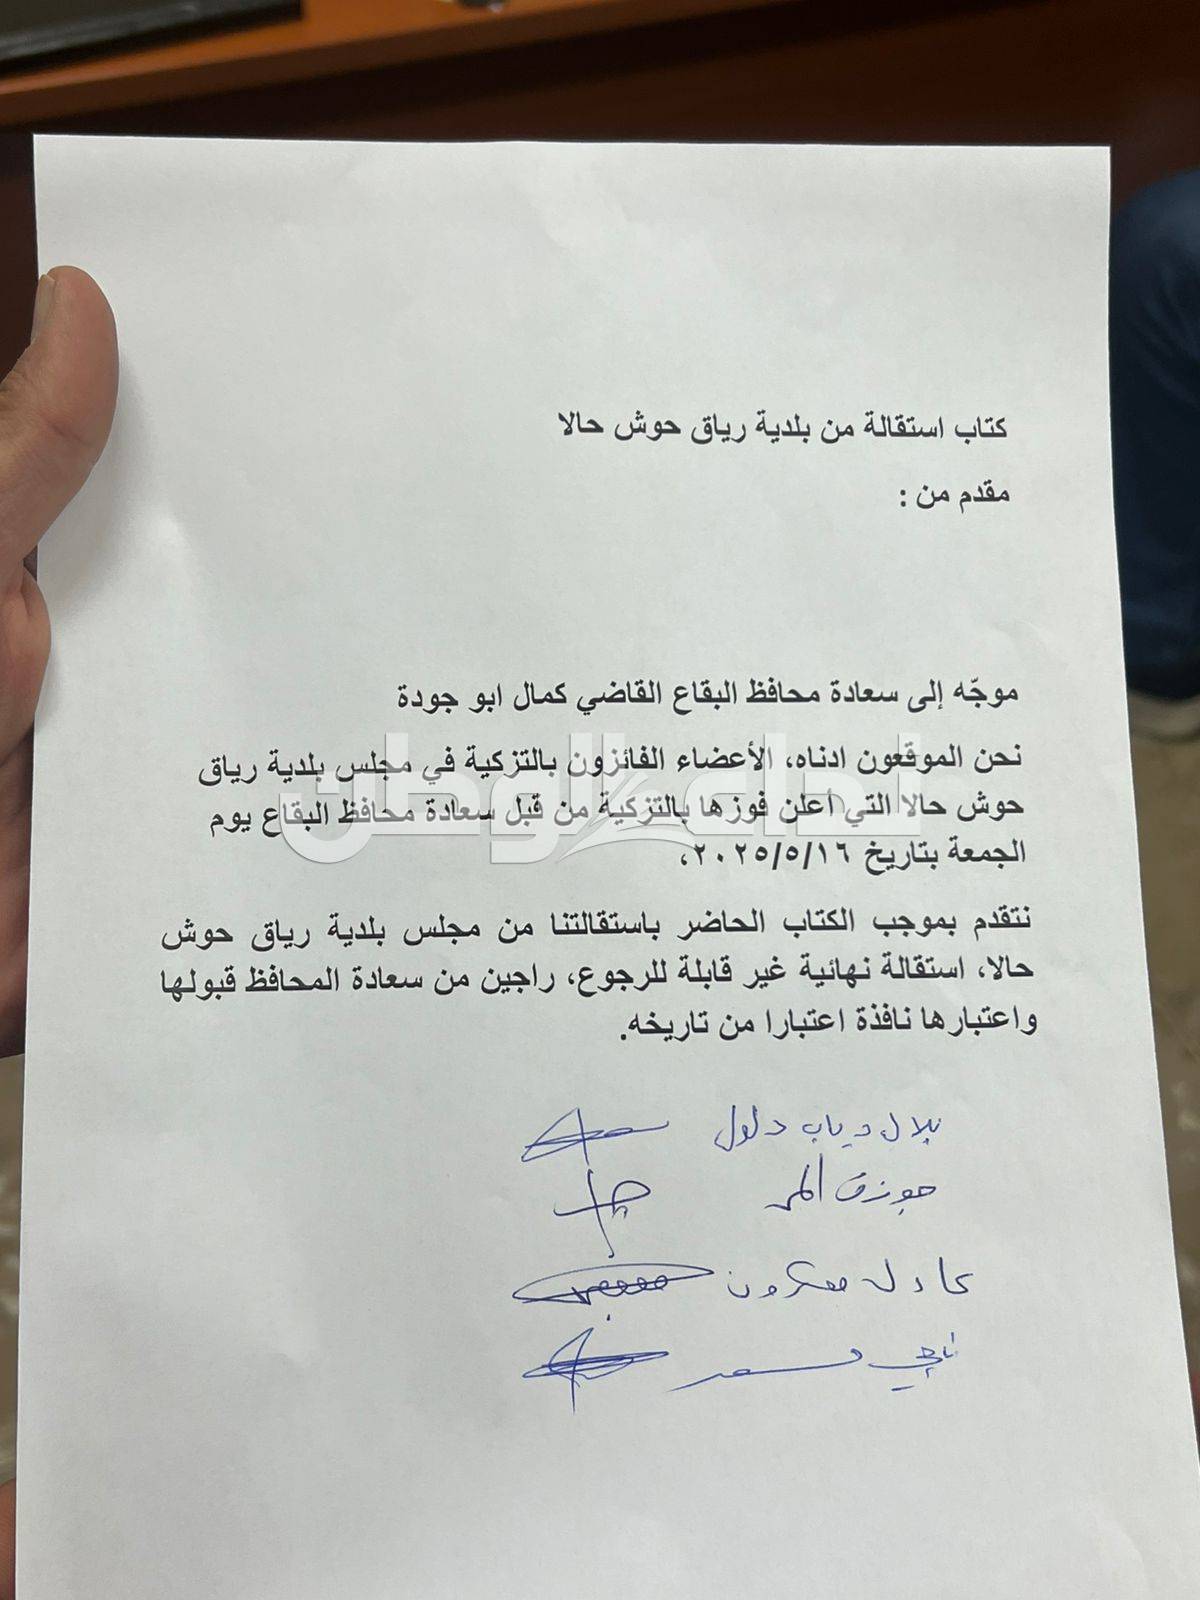 كتاب استقالة من بلدية رياق حوش حالا
مقدم من :
موجّه إلى سعادة محافظ البقاع القاضي كمال ابو جودة
نحن الموقعون ادناه، الأعضاء الفائزون بالتزكية في مجلس بلدية رياق
حوش حالا التي أعلن فوزها بالتزكية من قبل سعادة محافظ البقاع يوم
الجمعة بتاريخ ٢٠٢٥/٥/١٦،
نداء الوطن
نتقدم بموجب الكتاب الحاضر باستقالتنا من مجلس بلدية رياق حوش
حالا، استقالة نهائية غير قابلة للرجوع، راجين من سعادة المحافظ قبولها
واعتبارها نافذة اعتبارا من تاريخه.
بلال دياب دلول
جوزف المر
عادل معكرون
ناجي